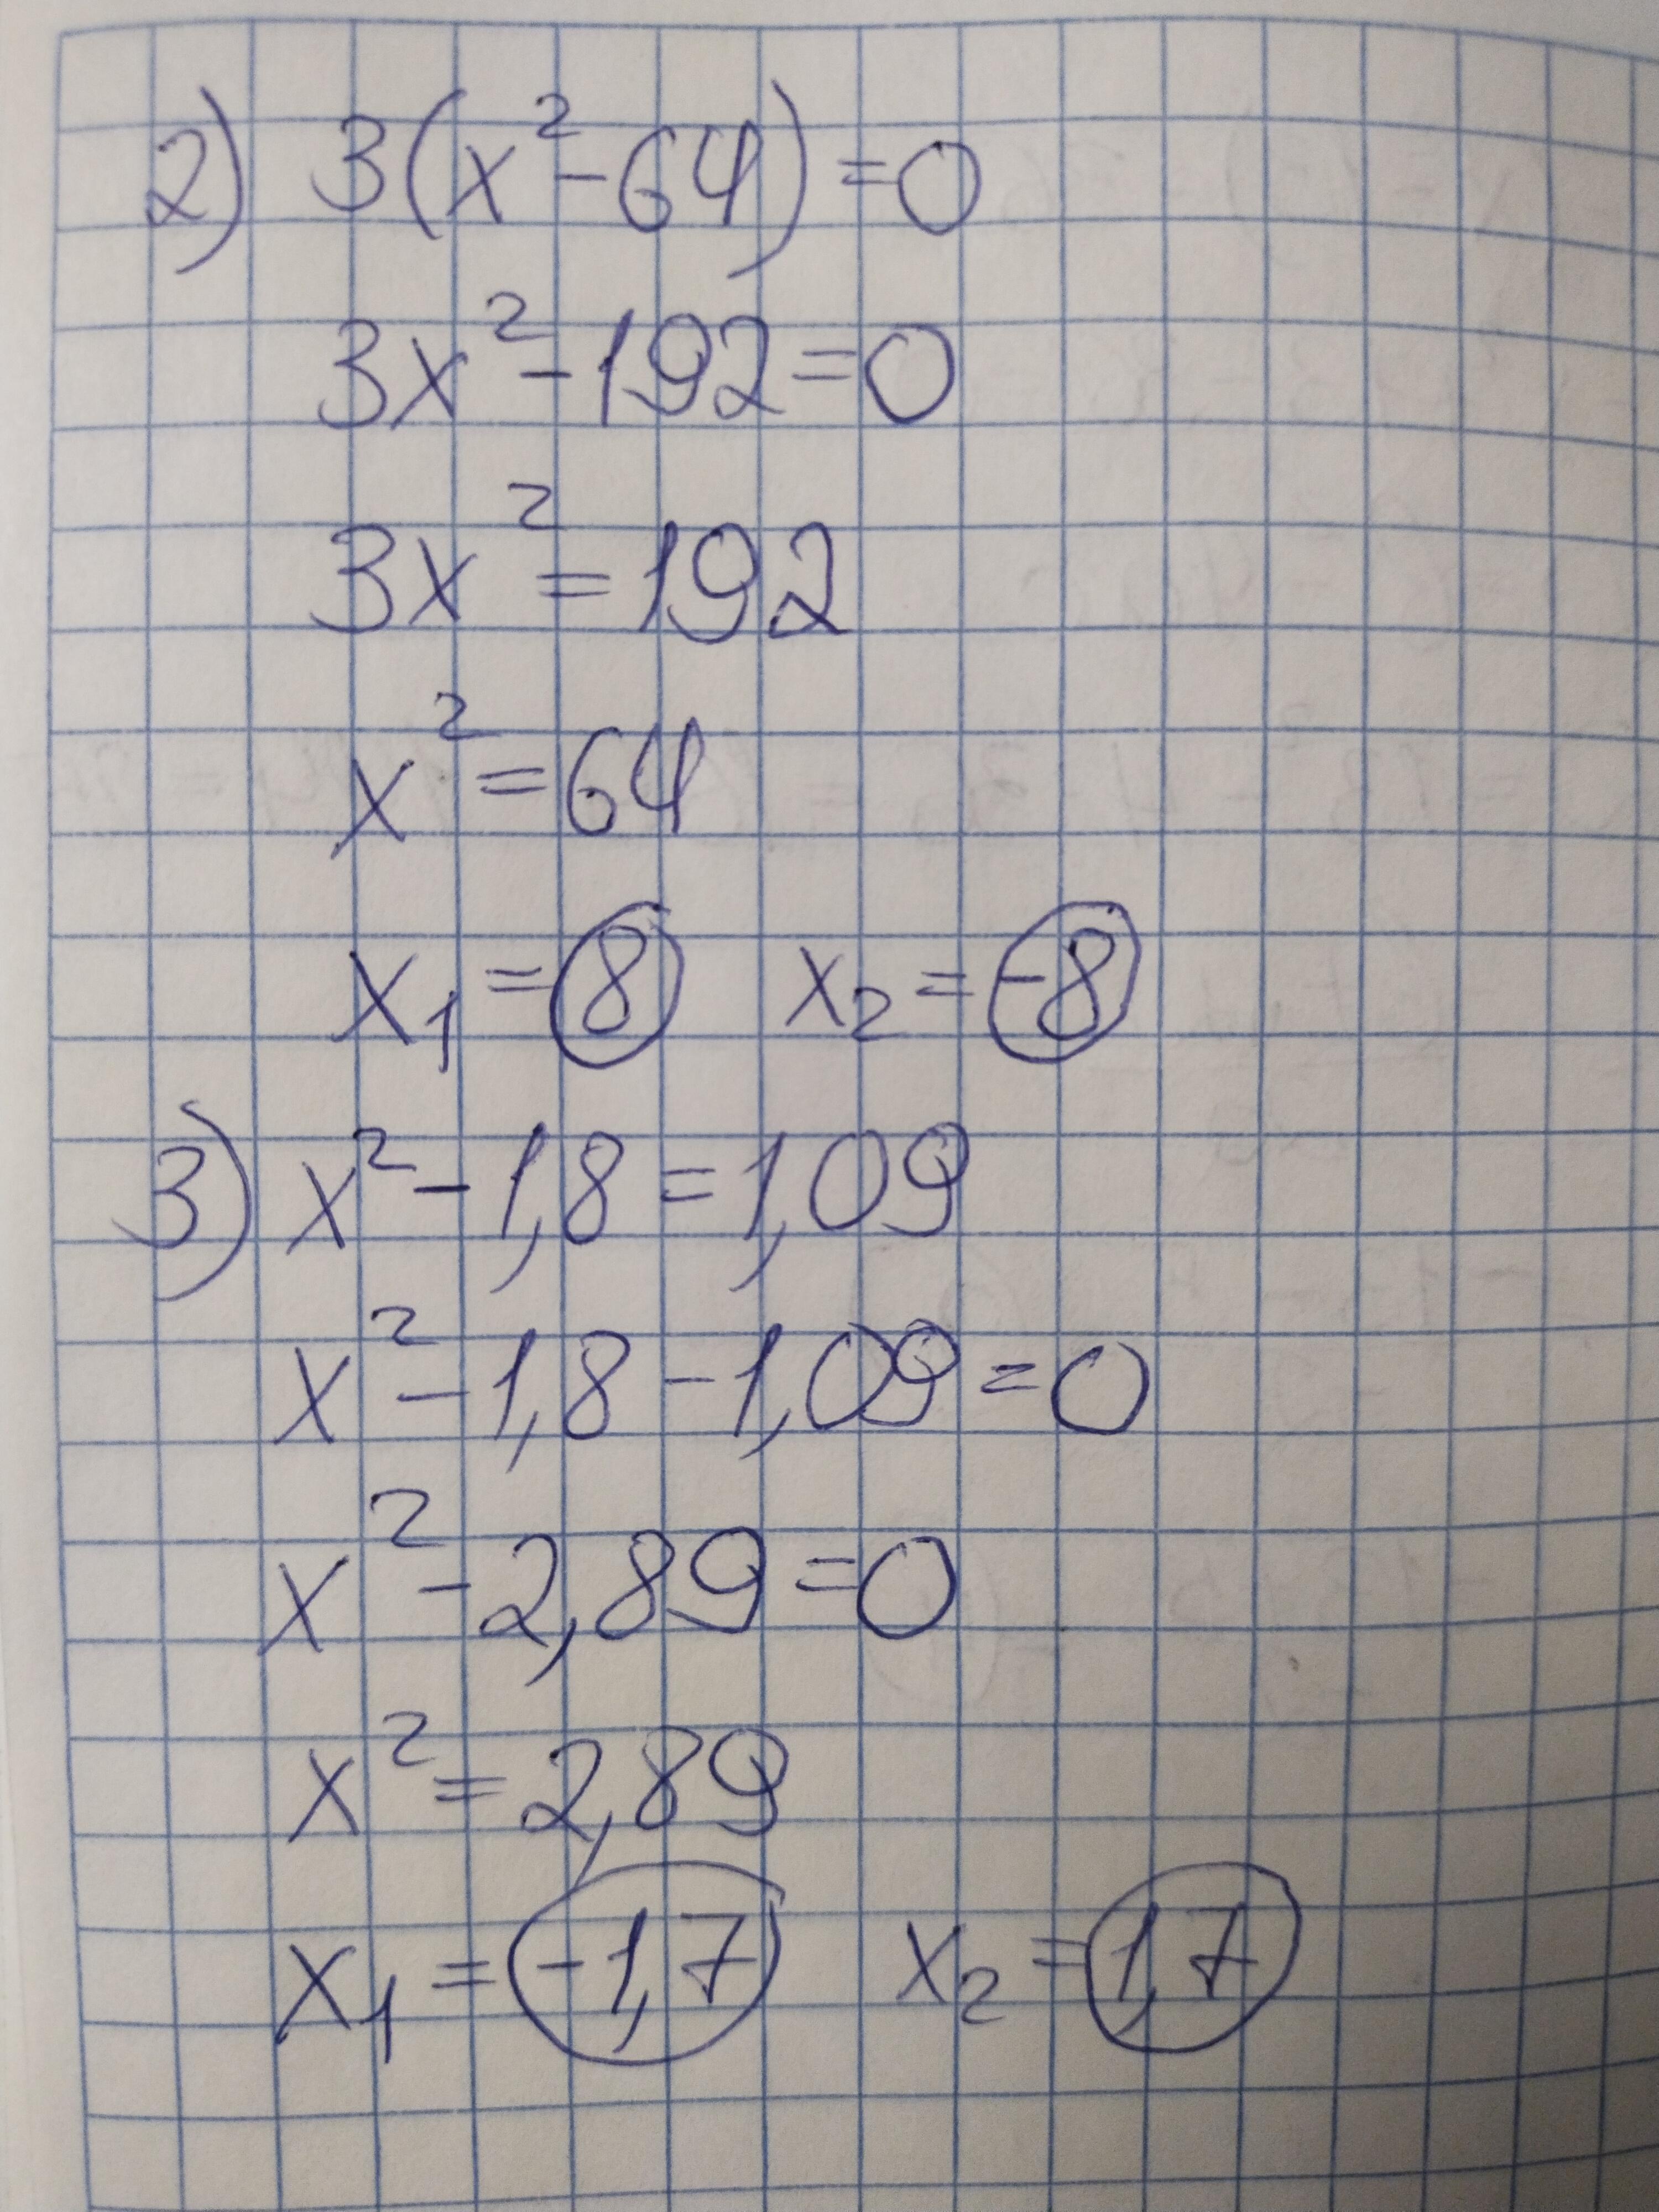 2) 3(x²-64)=0
3x²-192=0
3x²=192
x²=64
x₁=8 x₂=-8
3) x²-1,8=1,09
x²-1,8-1,09=0
x²-2,89=0
x²=2,89
x₁=-1,7 x₂=1,7